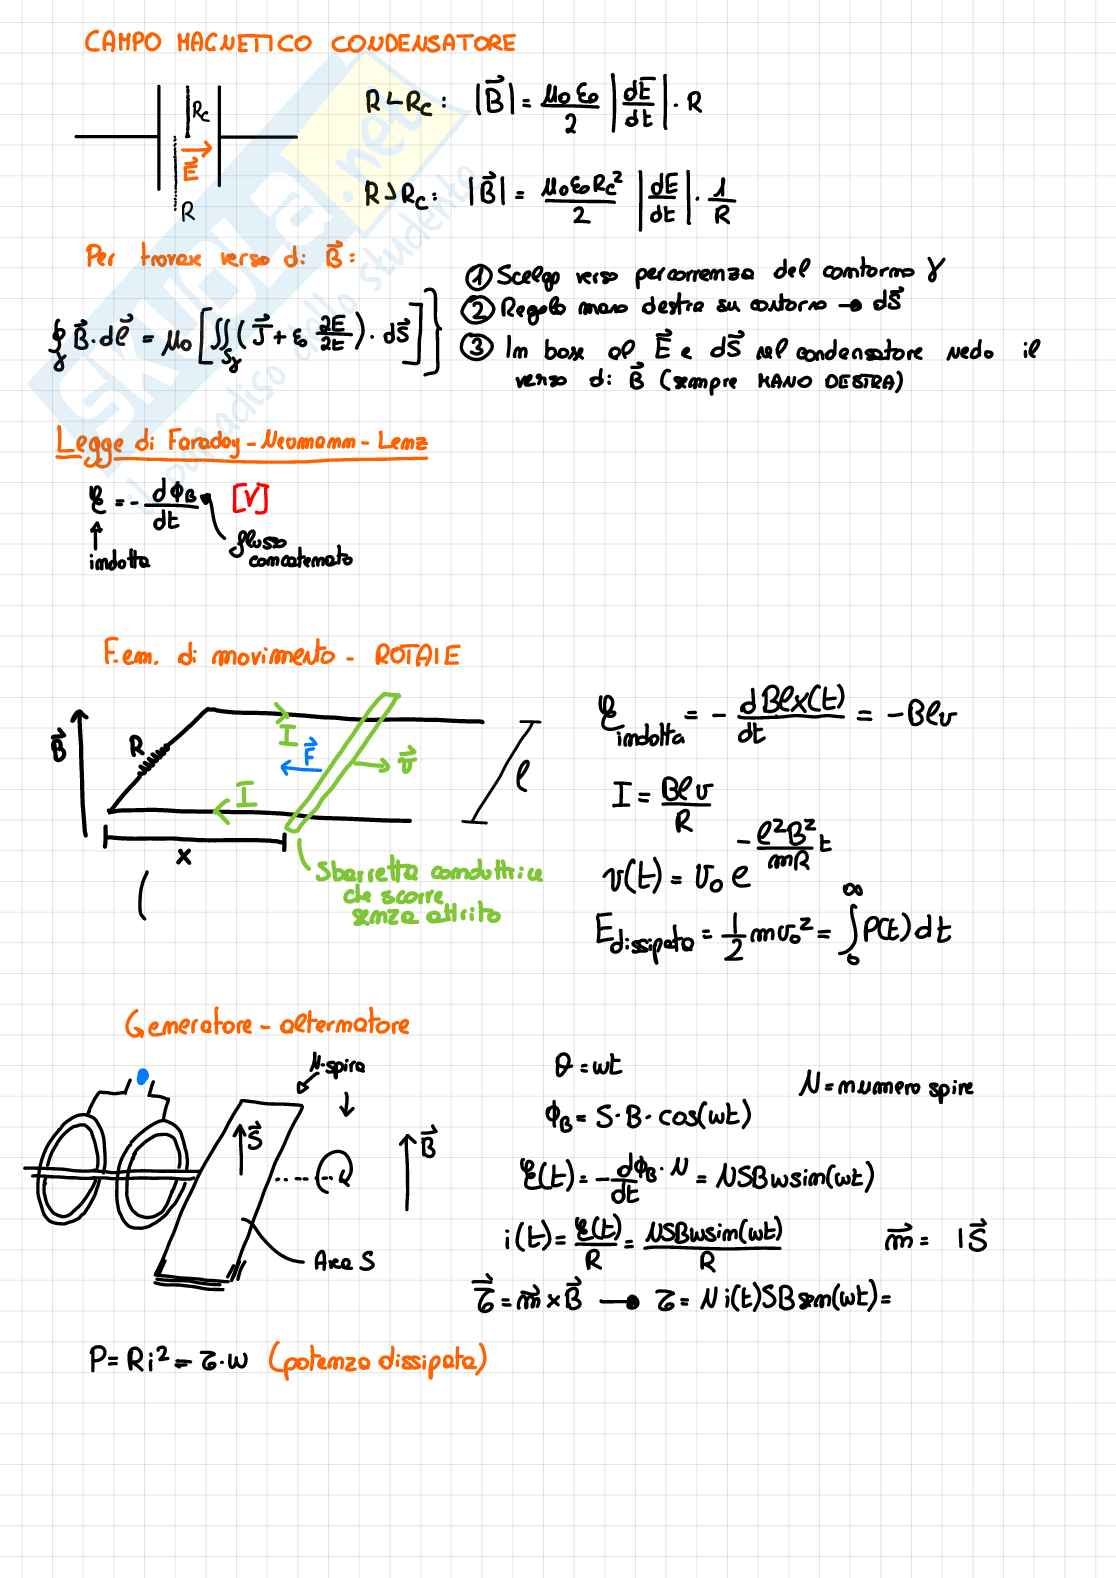 CAMPO MAGNETICO CONDENSATORE
R < Rc : |B⃗| = μ0 ε0 / 2 |dE⃗/dt| · R
Rc
E⃗
R
R > Rc : |B⃗| = μ0 ε0 Rc² / 2 |dE/dt| · 1/R
Per trovare verso di B⃗ :
∮γ B⃗ · dl⃗ = μ0 [∬Sγ (J⃗ + ε0 ∂E/∂t) · dS⃗]}
① Scelgo verso percorrenza del contorno γ
② Regola mano destra su contorno → dS⃗
③ In base al E⃗ e dS⃗ nel condensatore vedo il
verso di B⃗ (sempre MANO DESTRA)
SKUOLA.net
il paradiso dello studente
Legge di Faraday - Neumann - Lenz
ℰ = - dΦB/dt [V]
indotta
flusso
concatenato
F.em. di movimento - ROTAIE
B⃗
R
I
F⃗
v⃗
I
l
x
Sbarretta conduttrice
che scorre
senza attrito
ℰindotta = - d Blx(t)/dt = -Blv
I = Blv/R
v(t) = v0 e^(- l²B²/mR t)
Edissipata = 1/2 mv0² = ∫0^∞ P(t) dt
Generatore - alternatore
N·spire
S⃗
B⃗
Area S
θ = ωt
N = numero spire
ΦB = S · B · cos(ωt)
ℰ(t) = - dΦB/dt · N = NSBωsin(ωt)
i(t) = ℰ(t)/R = NSBωsin(ωt)/R
m⃗ = IS⃗
τ⃗ = m⃗ × B⃗ → τ = N i(t)SB sen(ωt) =
P = Ri² = τ·ω (potenza dissipata)